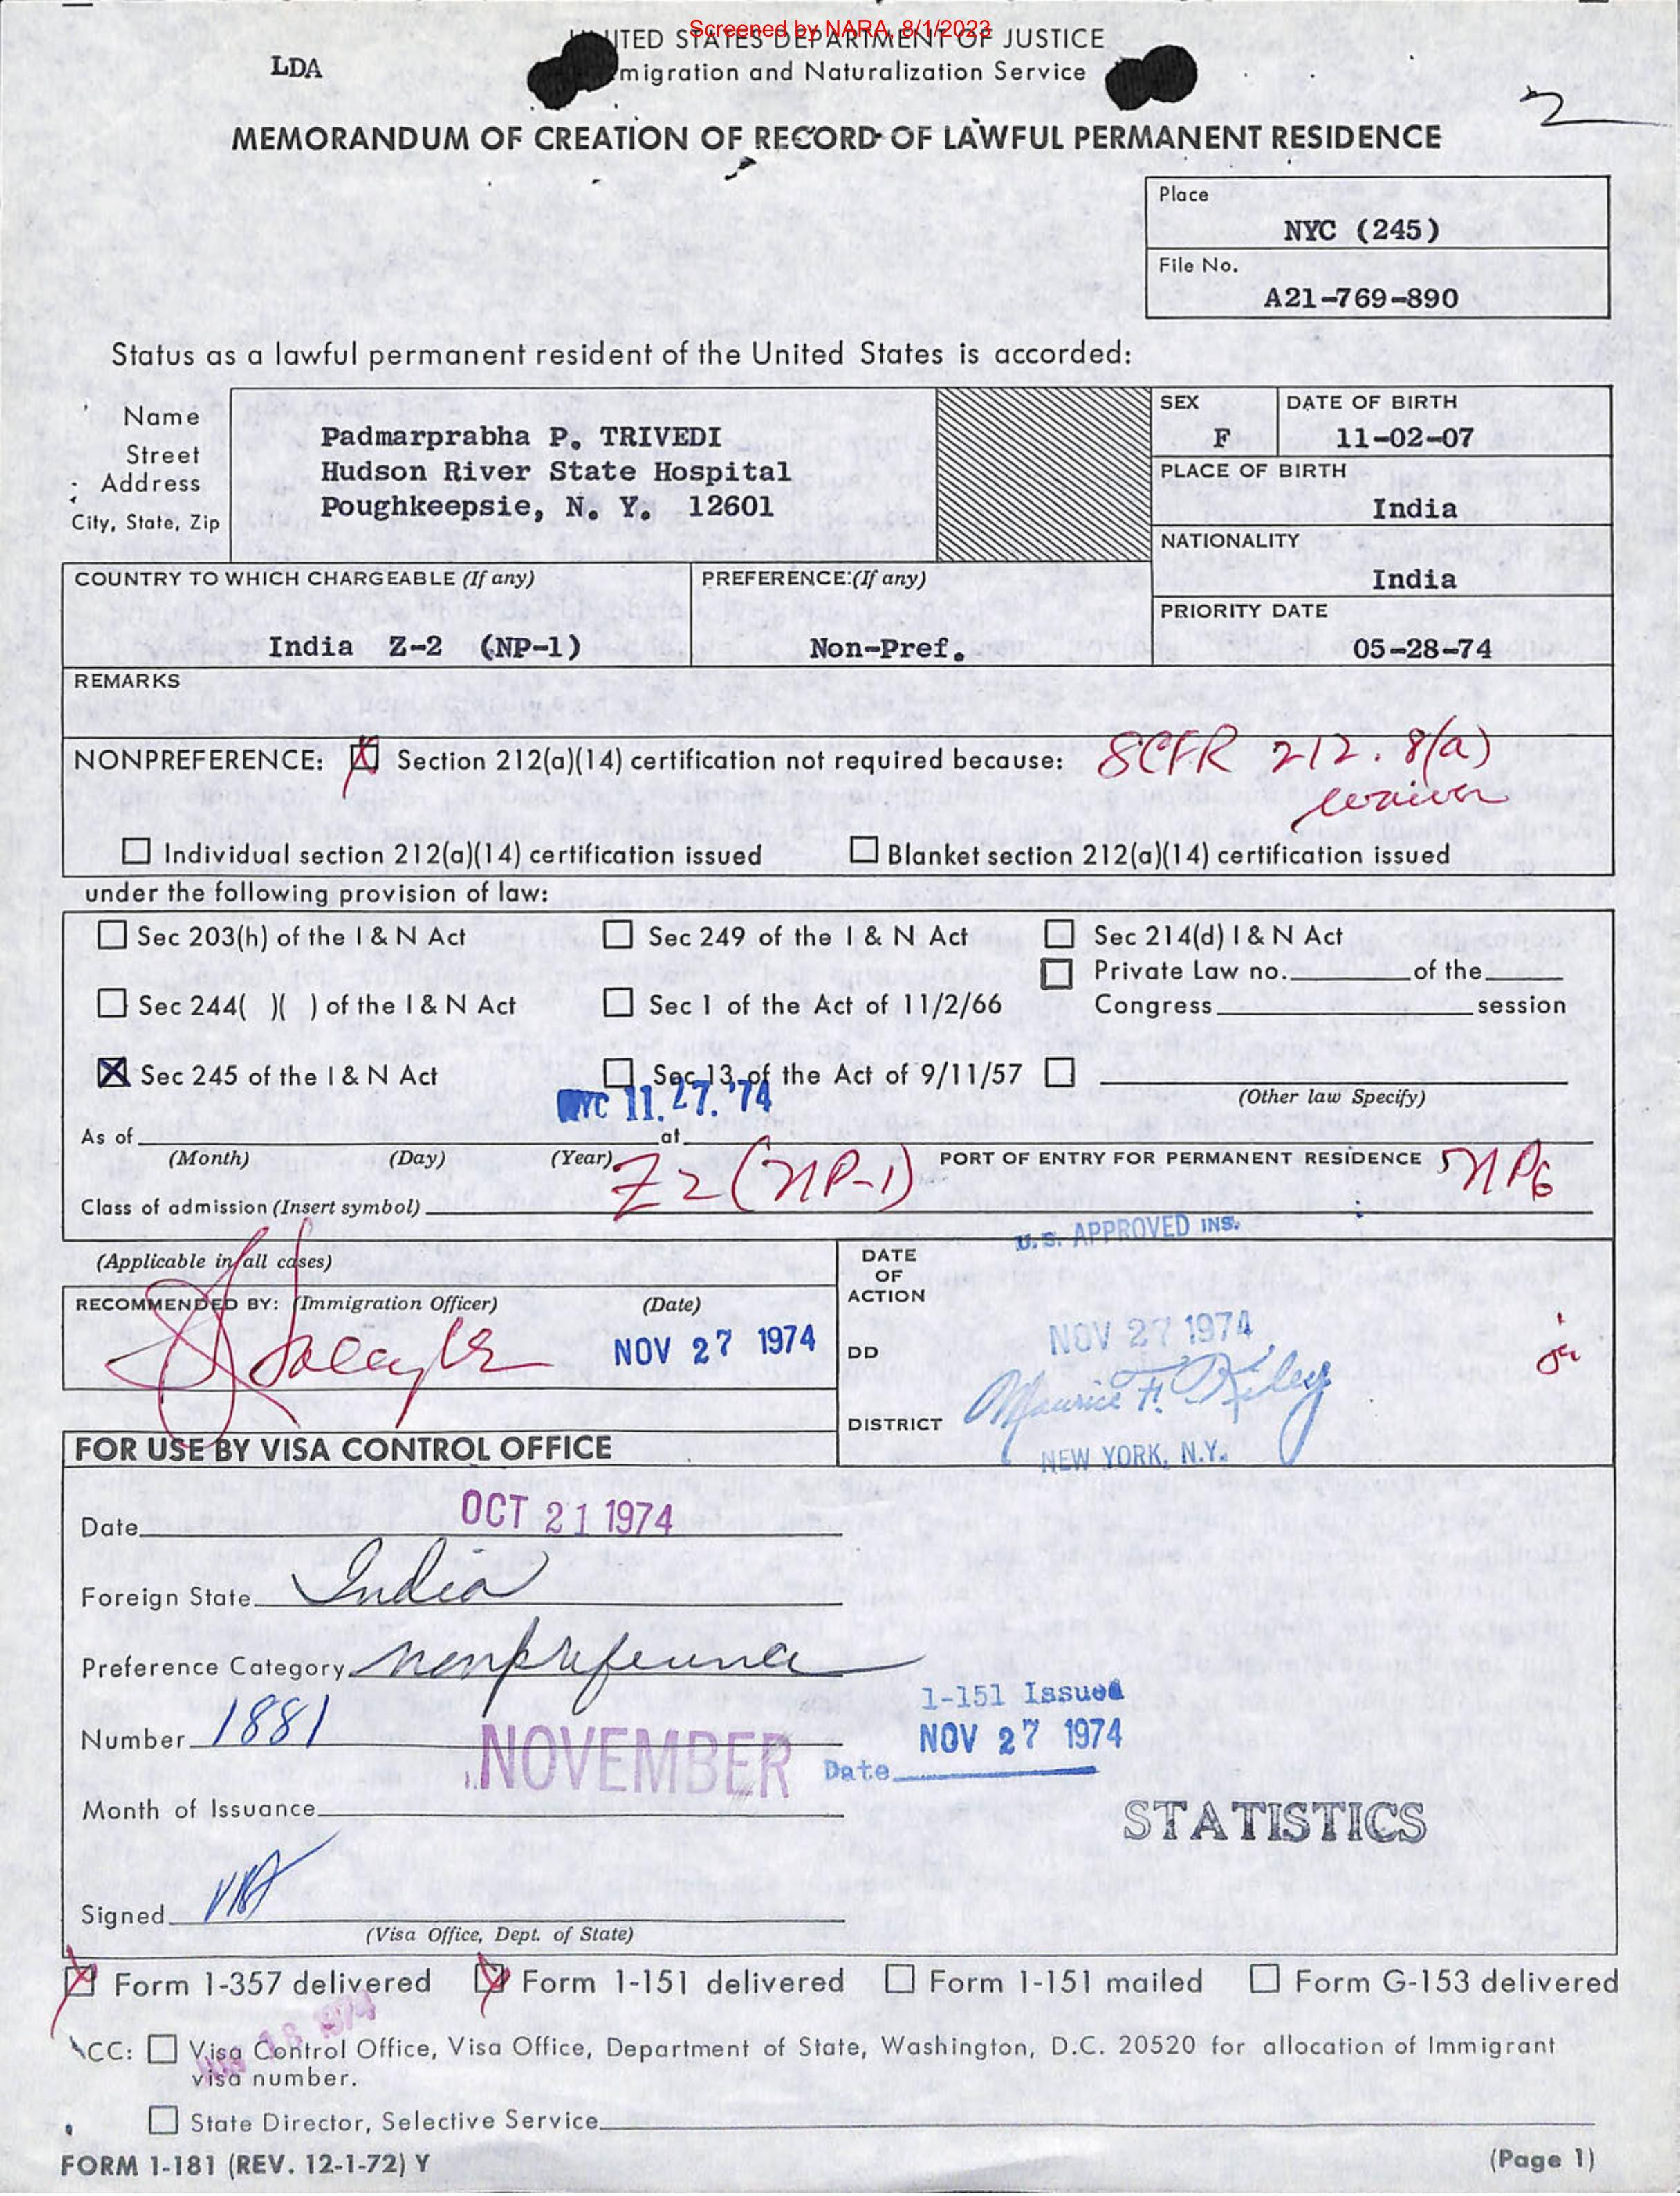 Screened by NARA, 8/1/2023
LDA
UNITED STATES DEPARTMENT OF JUSTICE
migration and Naturalization Service
2
MEMORANDUM OF CREATION OF RECORD OF LAWFUL PERMANENT RESIDENCE
Place
NYC (245)
File No.
A21-769-890
Status as a lawful permanent resident of the United States is accorded:
Name
Street
Address
City, State, Zip
Padmarprabha P. TRIVEDI
Hudson River State Hospital
Poughkeepsie, N. Y. 12601
SEX
F
DATE OF BIRTH
11-02-07
PLACE OF BIRTH
India
NATIONALITY
India
COUNTRY TO WHICH CHARGEABLE (If any)
India Z-2 (NP-1)
PREFERENCE:(If any)
Non-Pref.
PRIORITY DATE
05-28-74
REMARKS
NONPREFERENCE: X Section 212(a)(14) certification not required because: 8CFR 212.8(a)
waiver
Individual section 212(a)(14) certification issued Blanket section 212(a)(14) certification issued
under the following provision of law:
Sec 203(h) of the I & N Act Sec 249 of the I & N Act Sec 214(d) I & N Act
Private Law no. of the
Sec 244( )( ) of the I & N Act Sec 1 of the Act of 11/2/66 Congress session
X Sec 245 of the I & N Act Sec 13 of the Act of 9/11/57
(Other law Specify)
NYC 11.27.'74
As of at
(Month) (Day) (Year) PORT OF ENTRY FOR PERMANENT RESIDENCE NP6
Class of admission (Insert symbol) Z2 (NP-1)
U.S. APPROVED INS.
(Applicable in all cases)
RECOMMENDED BY: (Immigration Officer) (Date)
NOV 27 1974
DATE
OF
ACTION
NOV 27 1974
DD
Maurice F. Kiley
DISTRICT
NEW YORK, N.Y.
FOR USE BY VISA CONTROL OFFICE
Date OCT 21 1974
Foreign State India
Preference Category nonpreference
Number 1881
1-151 Issued
NOV 27 1974
Date
NOVEMBER
Month of Issuance
STATISTICS
Signed
(Visa Office, Dept. of State)
X Form I-357 delivered X Form I-151 delivered Form I-151 mailed Form G-153 delivered
18 1974
CC: Visa Control Office, Visa Office, Department of State, Washington, D.C. 20520 for allocation of Immigrant
visa number.
State Director, Selective Service
FORM I-181 (REV. 12-1-72) Y
(Page 1)